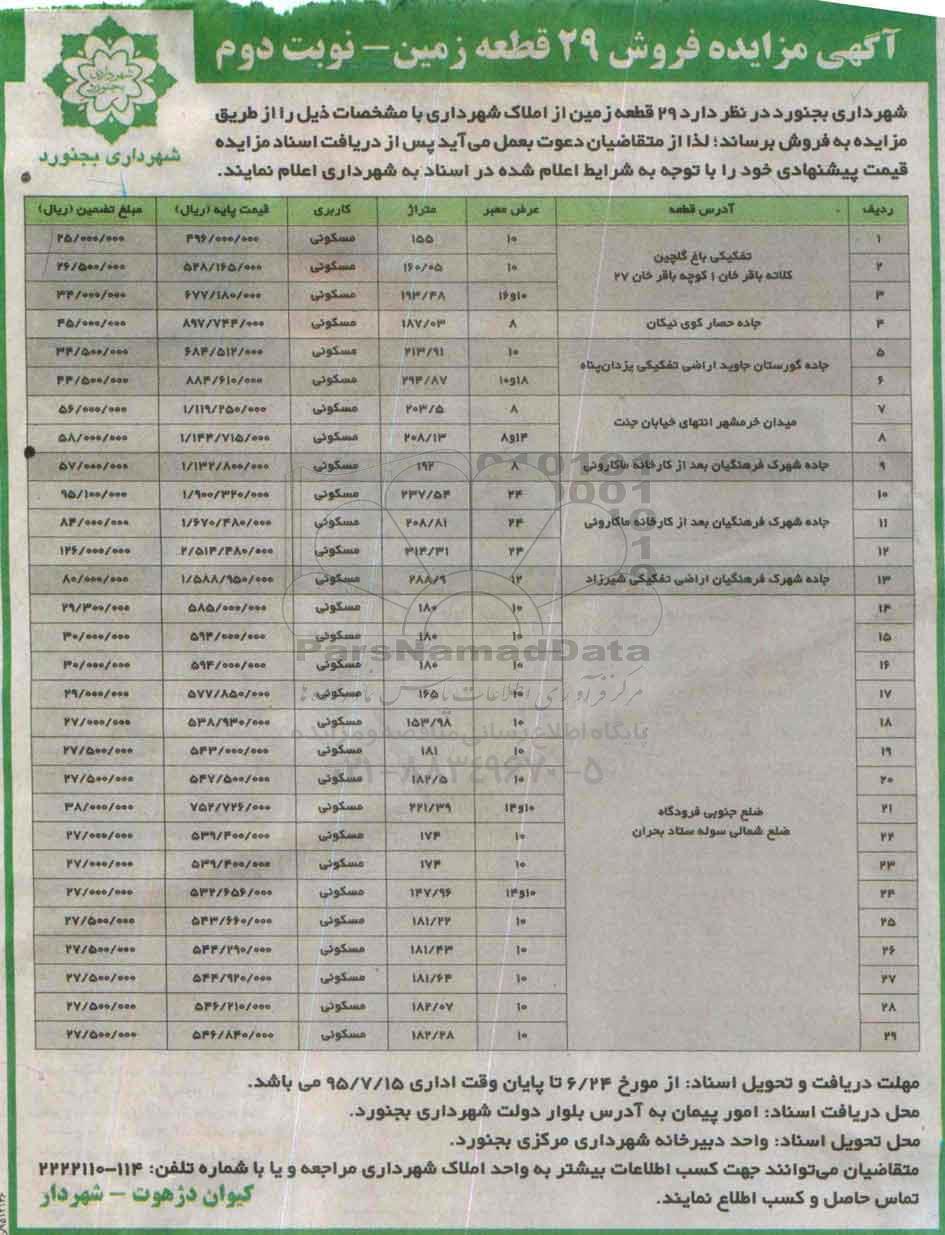 آگهی مزایده فروش ۲۹ قطعه زمین – نوبت دوم
شهرداری بجنورد
شهرداری بجنورد
شهرداری بجنورد در نظر دارد ۲۹ قطعه زمین از املاک شهرداری با مشخصات ذیل را از طریق
مزایده به فروش برساند؛ لذا از متقاضیان دعوت بعمل می‌آید پس از دریافت اسناد مزایده
قیمت پیشنهادی خود را با توجه به شرایط اعلام شده در اسناد به شهرداری اعلام نمایند.
ردیف آدرس قطعه عرض معبر متراژ کاربری قیمت پایه (ریال) مبلغ تضمین (ریال)
تفکیکی باغ گلچین
کلاته باقر خان ۱ کوچه باقر خان ۲۷
۱ ۱۰ ۱۵۵ مسکونی ۴۹۶/۰۰۰/۰۰۰ ۲۵/۰۰۰/۰۰۰
۲ ۱۰ ۱۶۰/۰۵ مسکونی ۵۲۸/۱۶۵/۰۰۰ ۲۶/۵۰۰/۰۰۰
۳ ۱۰و۱۶ ۱۹۳/۴۸ مسکونی ۶۷۷/۱۸۰/۰۰۰ ۳۴/۰۰۰/۰۰۰
۴ جاده حصار کوی نیکان ۸ ۱۸۷/۰۳ مسکونی ۸۹۷/۷۴۴/۰۰۰ ۴۵/۰۰۰/۰۰۰
جاده گورستان جاوید اراضی تفکیکی یزدان‌پناه
۵ ۱۰ ۲۱۳/۹۱ مسکونی ۶۸۴/۵۱۲/۰۰۰ ۳۴/۵۰۰/۰۰۰
۶ ۱۸و۱۰ ۲۹۴/۸۷ مسکونی ۸۸۴/۶۱۰/۰۰۰ ۴۴/۵۰۰/۰۰۰
میدان خرمشهر انتهای خیابان جنت
۷ ۸ ۲۰۳/۵ مسکونی ۱/۱۱۹/۲۵۰/۰۰۰ ۵۶/۰۰۰/۰۰۰
۸ ۱۴و۸ ۲۰۸/۱۳ مسکونی ۱/۱۴۴/۷۱۵/۰۰۰ ۵۸/۰۰۰/۰۰۰
۹ جاده شهرک فرهنگیان بعد از کارخانه ماکارونی ۸ ۱۹۲ مسکونی ۱/۱۳۲/۸۰۰/۰۰۰ ۵۷/۰۰۰/۰۰۰
جاده شهرک فرهنگیان بعد از کارخانه ماکارونی
۱۰ ۲۴ ۲۳۷/۵۴ مسکونی ۱/۹۰۰/۳۲۰/۰۰۰ ۹۵/۱۰۰/۰۰۰
۱۱ ۲۴ ۲۰۸/۸۱ مسکونی ۱/۶۷۰/۴۸۰/۰۰۰ ۸۴/۰۰۰/۰۰۰
۱۲ ۲۴ ۳۱۴/۳۱ مسکونی ۲/۵۱۴/۴۸۰/۰۰۰ ۱۲۶/۰۰۰/۰۰۰
۱۳ جاده شهرک فرهنگیان اراضی تفکیکی شیرزاد ۱۲ ۲۸۸/۹ مسکونی ۱/۵۸۸/۹۵۰/۰۰۰ ۸۰/۰۰۰/۰۰۰
ضلع جنوبی فرودگاه
ضلع شمالی سوله ستاد بحران
۱۴ ۱۰ ۱۸۰ مسکونی ۵۸۵/۰۰۰/۰۰۰ ۲۹/۳۰۰/۰۰۰
۱۵ ۱۰ ۱۸۰ مسکونی ۵۹۴/۰۰۰/۰۰۰ ۳۰/۰۰۰/۰۰۰
۱۶ ۱۰ ۱۸۰ مسکونی ۵۹۴/۰۰۰/۰۰۰ ۳۰/۰۰۰/۰۰۰
۱۷ ۱۰ ۱۶۵ مسکونی ۵۷۷/۸۵۰/۰۰۰ ۲۹/۰۰۰/۰۰۰
۱۸ ۱۰ ۱۵۳/۹۸ مسکونی ۵۳۸/۹۳۰/۰۰۰ ۲۷/۰۰۰/۰۰۰
۱۹ ۱۰ ۱۸۱ مسکونی ۵۴۳/۰۰۰/۰۰۰ ۲۷/۵۰۰/۰۰۰
۲۰ ۱۰ ۱۸۲/۵ مسکونی ۵۴۷/۵۰۰/۰۰۰ ۲۷/۵۰۰/۰۰۰
۲۱ ۱۰و۱۴ ۲۲۱/۳۹ مسکونی ۷۵۲/۷۲۶/۰۰۰ ۳۸/۰۰۰/۰۰۰
۲۲ ۱۰ ۱۷۴ مسکونی ۵۳۹/۴۰۰/۰۰۰ ۲۷/۰۰۰/۰۰۰
۲۳ ۱۰ ۱۷۴ مسکونی ۵۳۹/۴۰۰/۰۰۰ ۲۷/۰۰۰/۰۰۰
۲۴ ۱۰و۱۴ ۱۴۷/۹۶ مسکونی ۵۳۲/۶۵۶/۰۰۰ ۲۷/۰۰۰/۰۰۰
۲۵ ۱۰ ۱۸۱/۲۲ مسکونی ۵۴۳/۶۶۰/۰۰۰ ۲۷/۵۰۰/۰۰۰
۲۶ ۱۰ ۱۸۱/۴۳ مسکونی ۵۴۴/۲۹۰/۰۰۰ ۲۷/۵۰۰/۰۰۰
۲۷ ۱۰ ۱۸۱/۶۴ مسکونی ۵۴۴/۹۲۰/۰۰۰ ۲۷/۵۰۰/۰۰۰
۲۸ ۱۰ ۱۸۲/۰۷ مسکونی ۵۴۶/۲۱۰/۰۰۰ ۲۷/۵۰۰/۰۰۰
۲۹ ۱۰ ۱۸۲/۲۸ مسکونی ۵۴۶/۸۴۰/۰۰۰ ۲۷/۵۰۰/۰۰۰
ParsNamadData
پایگاه اطلاع رسانی مناقصه و مزایده
۰۲۱-۸۸۳۴۹۶۷۰-۵
مهلت دریافت و تحویل اسناد: از مورخ ۶/۲۴ تا پایان وقت اداری ۹۵/۷/۱۵ می باشد.
محل دریافت اسناد: امور پیمان به آدرس بلوار دولت شهرداری بجنورد.
محل تحویل اسناد: واحد دبیرخانه شهرداری مرکزی بجنورد.
متقاضیان می‌توانند جهت کسب اطلاعات بیشتر به واحد املاک شهرداری مراجعه و یا با شماره تلفن: ۱۱۴-۲۲۲۲۱۱۰
تماس حاصل و کسب اطلاع نمایند.
کیوان دژهوت – شهردار